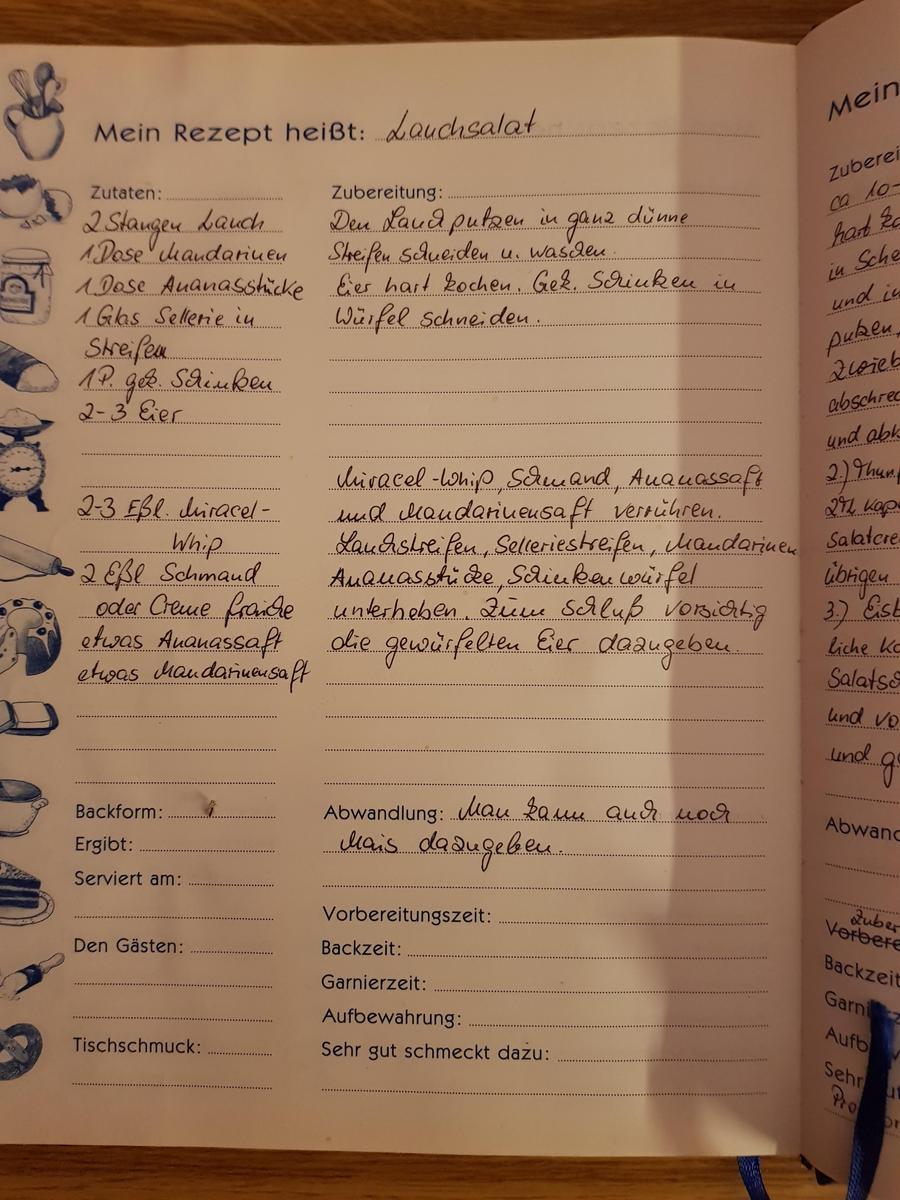 Mein Rezept heißt: Lauchsalat
Zutaten:
2 Stangen Lauch
1 Dose Mandarinen
1 Dose Ananasstücke
1 Glas Sellerie in
Streifen
1 P. gek. Schinken
2-3 Eier
2-3 Eßl. Miracel-
Whip
2 Eßl Schmand
oder Creme fraiche
etwas Ananassaft
etwas Mandarinensaft
Zubereitung:
Den Lauch putzen in ganz dünne
Streifen schneiden u. waschen.
Eier hart kochen. Gek. Schinken in
Würfel schneiden.
Miracel-Whip, Schmand, Ananassaft
und Mandarinensaft verrühren.
Lauchstreifen, Selleriestreifen, Mandarinen
Ananasstücke, Schinkenwürfel
unterheben. Zum Schluß vorsichtig
die gewürfelten Eier dazugeben.
Backform:
Ergibt:
Serviert am:
Den Gästen:
Tischschmuck:
Abwandlung: Man kann auch noch
Mais dazugeben.
Vorbereitungszeit:
Backzeit:
Garnierzeit:
Aufbewahrung:
Sehr gut schmeckt dazu:
Mein
Zuberei
ca 10-
hart ko
in Sche
und in
putzen,
Zwieb
abschrec
und abk
2.) Thunf
2 EL Kape
Salatcre
übrigen
3.) Eisb
liche Ko
Salatsc
und vo
und g
Abwand
Zuber
Vorbere
Backzeit
Garni
Aufb
Sehr